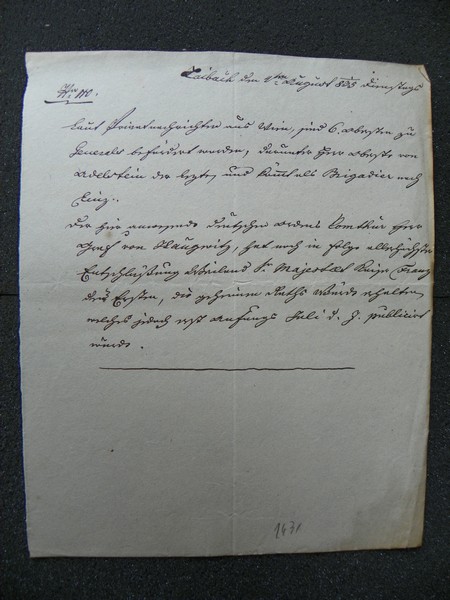 Laibach den 4ten August 835 Dienstags
Nro 110.
Laut Privatnachrichten aus Wien, sind 6. Obersten zu
Generals befördert worden, darunter Herr Oberste von
Adelstein der lezte, und kömmt als Brigadier nach
Linz.
Der hier anwesende deutschen Ordens Comthur Herr
Graf von Haugwitz, hat noch in Folge allerhöchster
Entschließung Weiland Sr. Majestät Kaiser Franz
des Ersten, die geheimen Raths Würde erhalten,
welches jedoch erst Anfangs Juli d. J. publicirt
wurde.